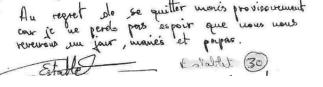 Au regret de se quitter mariés provisoirement
car je ne perds pas espoir que nous nous
reverrons un jour, mariés et papas.
Establet
Establet 30